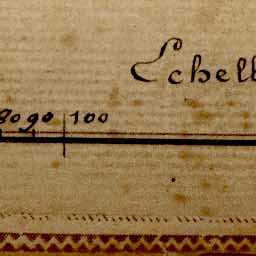 Echell
80 90 100